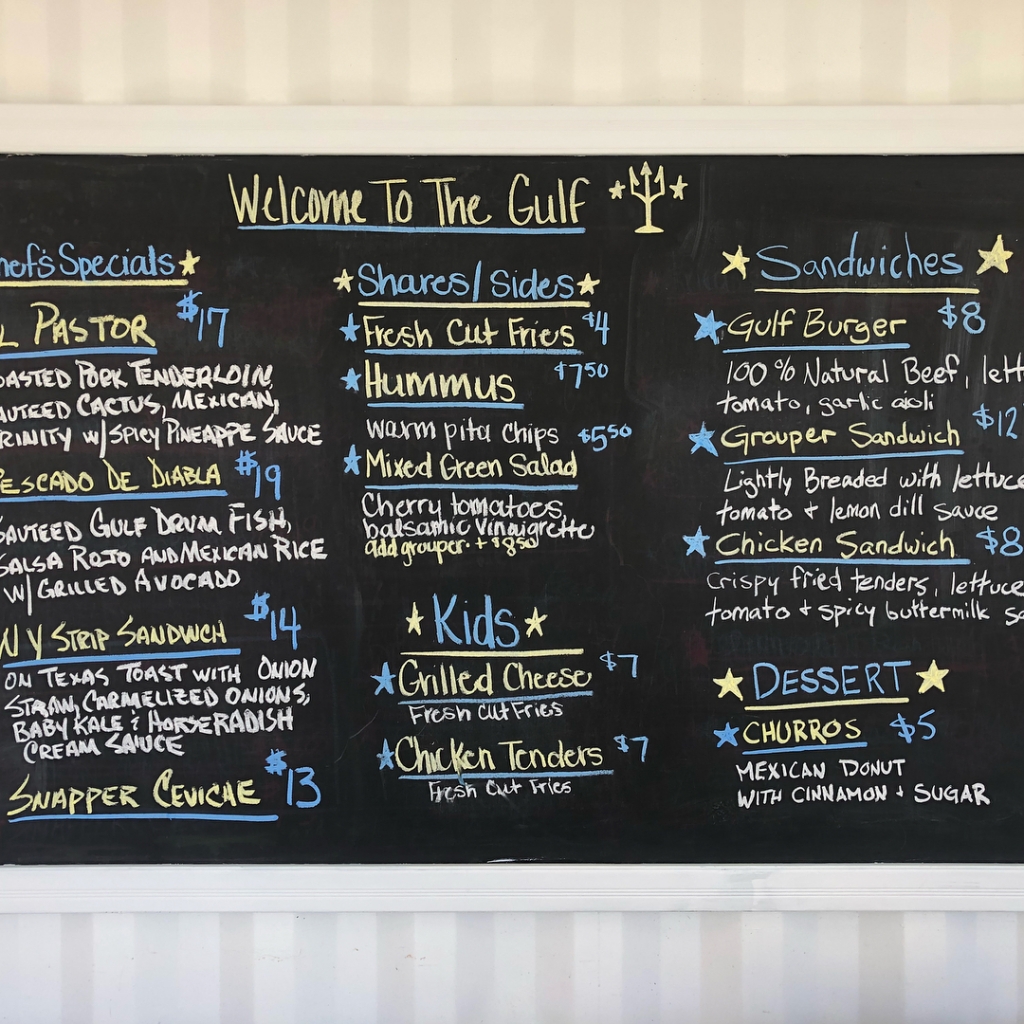 Welcome To The Gulf
hef's Specials
L PASTOR $17
OASTED PORK TENDERLOIN,
AUTEED CACTUS, MEXICAN,
RINITY W/ SPICY PINEAPPE SAUCE
ESCADO DE DIABLA $19
SAUTEED GULF DRUM FISH,
SALSA ROJO AND MEXICAN RICE
W/ GRILLED AVOCADO
N Y STRIP SANDWCH $14
ON TEXAS TOAST WITH ONION
STRAW, CARMELIZED ONIONS,
BABY KALE & HORSERADISH
CREAM SAUCE
SNAPPER CEVICHE $13
Shares/Sides
Fresh Cut Fries $4
Hummus $7.50
warm pita chips
Mixed Green Salad $5.50
Cherry tomatoes,
balsamic vinaigrette
add grouper. + $8.50
Kids
Grilled Cheese $7
Fresh Cut Fries
Chicken Tenders $7
Fresh Cut Fries
Sandwiches
Gulf Burger $8
100% Natural Beef, lett
tomato, garlic aioli
Grouper Sandwich $12
Lightly Breaded with lettuce
tomato + lemon dill sauce
Chicken Sandwich $8
Crispy fried tenders, lettuce
tomato + spicy buttermilk sa
DESSERT
CHURROS $5
MEXICAN DONUT
WITH CINNAMON + SUGAR